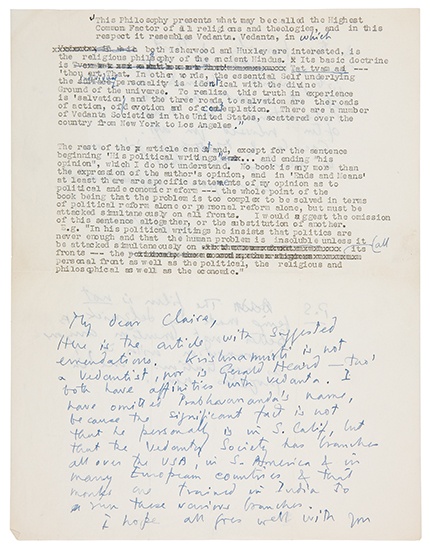 "This Philosophy presents what may be called the Highest
Common Factor of all religions and theologies, and in this
respect it resembles Vedanta. Vedanta, in which
both Isherwood and Huxley are interested, is
the religious philosophy of the ancient Hindus. Its basic doctrine
is Tat twam asi ---
'thou art That. In other words, the essential Self underlying
the surface personality is identical with the divine
Ground of the universe. To realize this truth in experience
is 'salvation', and the three roads to salvation are the roads
of action, of devotion and of contemplation. There are a number
of Vedanta Societies in the United States, scattered over the
country from New York to Los Angeles."
The rest of the article can stand, except for the sentence
beginning "His political writings ... and ending "his
opinion", which I do not understand. No book is any more than
the expression of the author's opinion, and in 'Ends and Means'
at least there are specific statements of my opinion as to
political and economic reform --- the whole point of the
book being that the problem is too complex to be solved in terms
of political reform alone or personal reform alone, but must be
attacked simultaneously on all fronts. I would suggest the omission
of this sentence altogether, or the substitution of another.
E.g. "In his political writings he insists that politics are
never enough and that the human problem is insoluble unless it
be attacked simultaneously on all its
fronts --- the
personal front as well as the political, the religious and
philosophical as well as the economic."
My dear Claire,
Here is the article with suggested
emendations. Krishnamurti is not
a Vedantist, nor is Gerald Heard — tho'
both have affinities with vedanta. I
have omitted Prabhavananda's name,
because the significant fact is not
that he personally is in S. Calif, but
that the Vedanta Society has branches
all over the USA, in S. America & in
many European countries & that
monks are trained in India to
run these various branches.
I hope all goes well with you